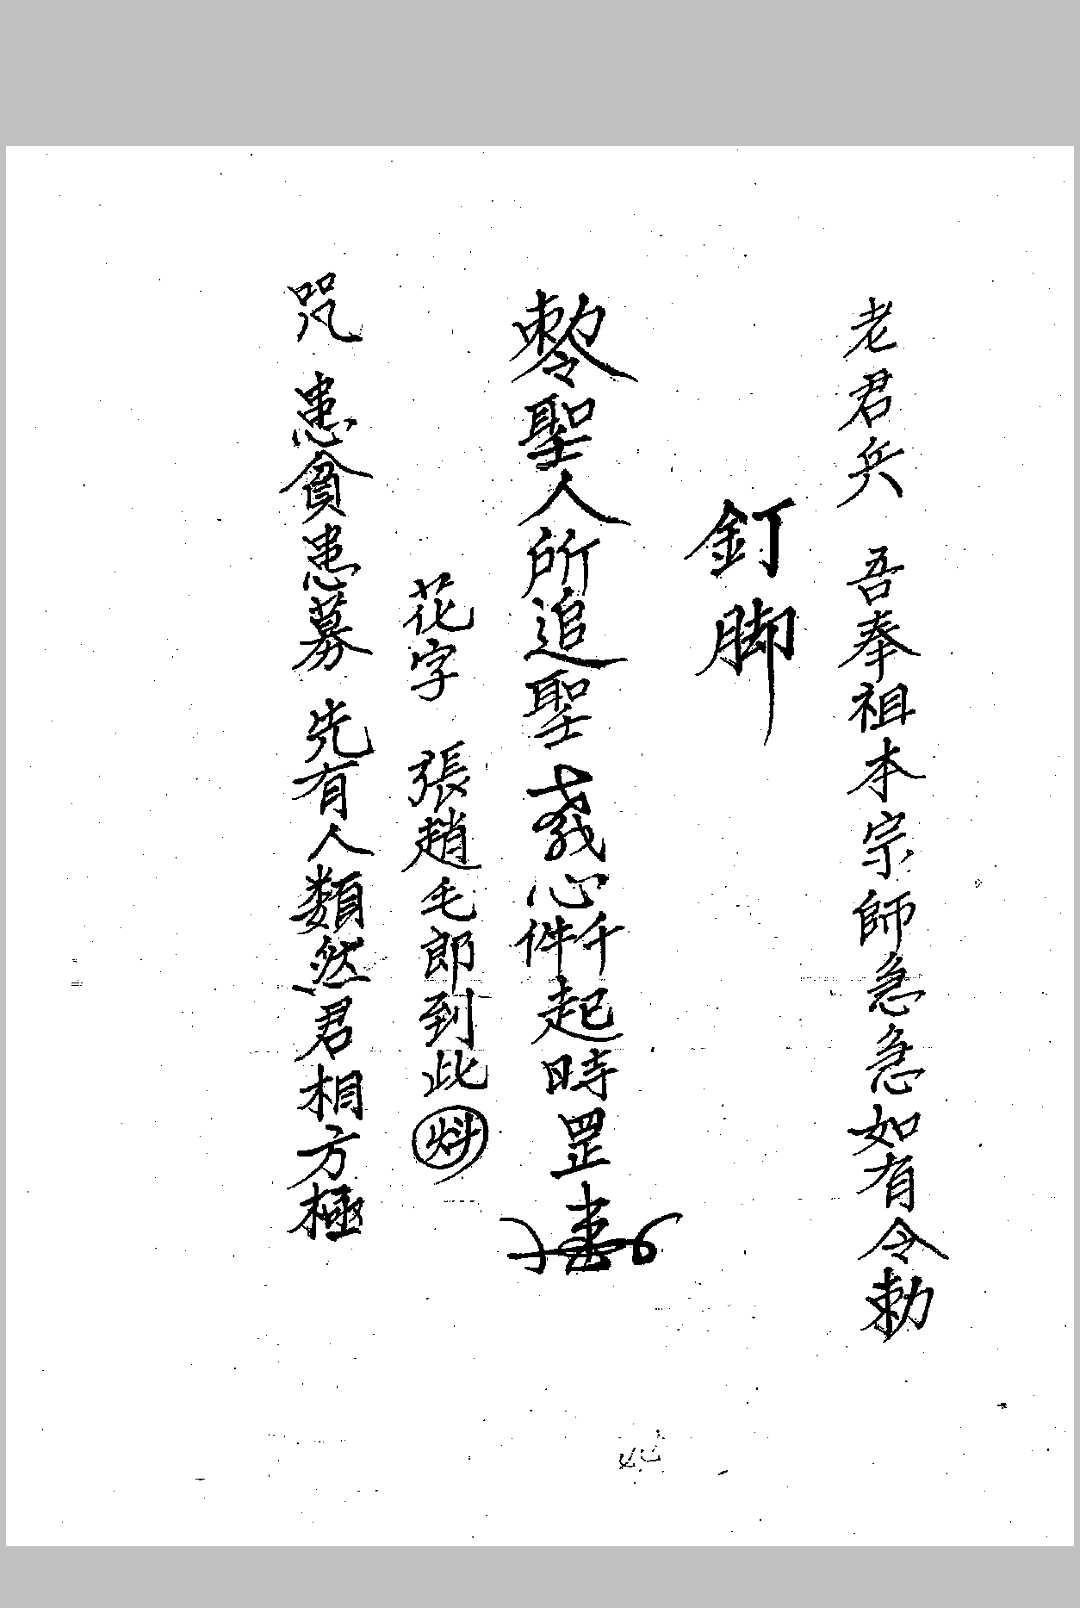 老君兵 吾奉祖本宗師急急如有令勅
釘脚
聖人所追聖心件仟起時罡
花字 張趙毛郎到此
咒 患貧患募 先有人類然君相方極